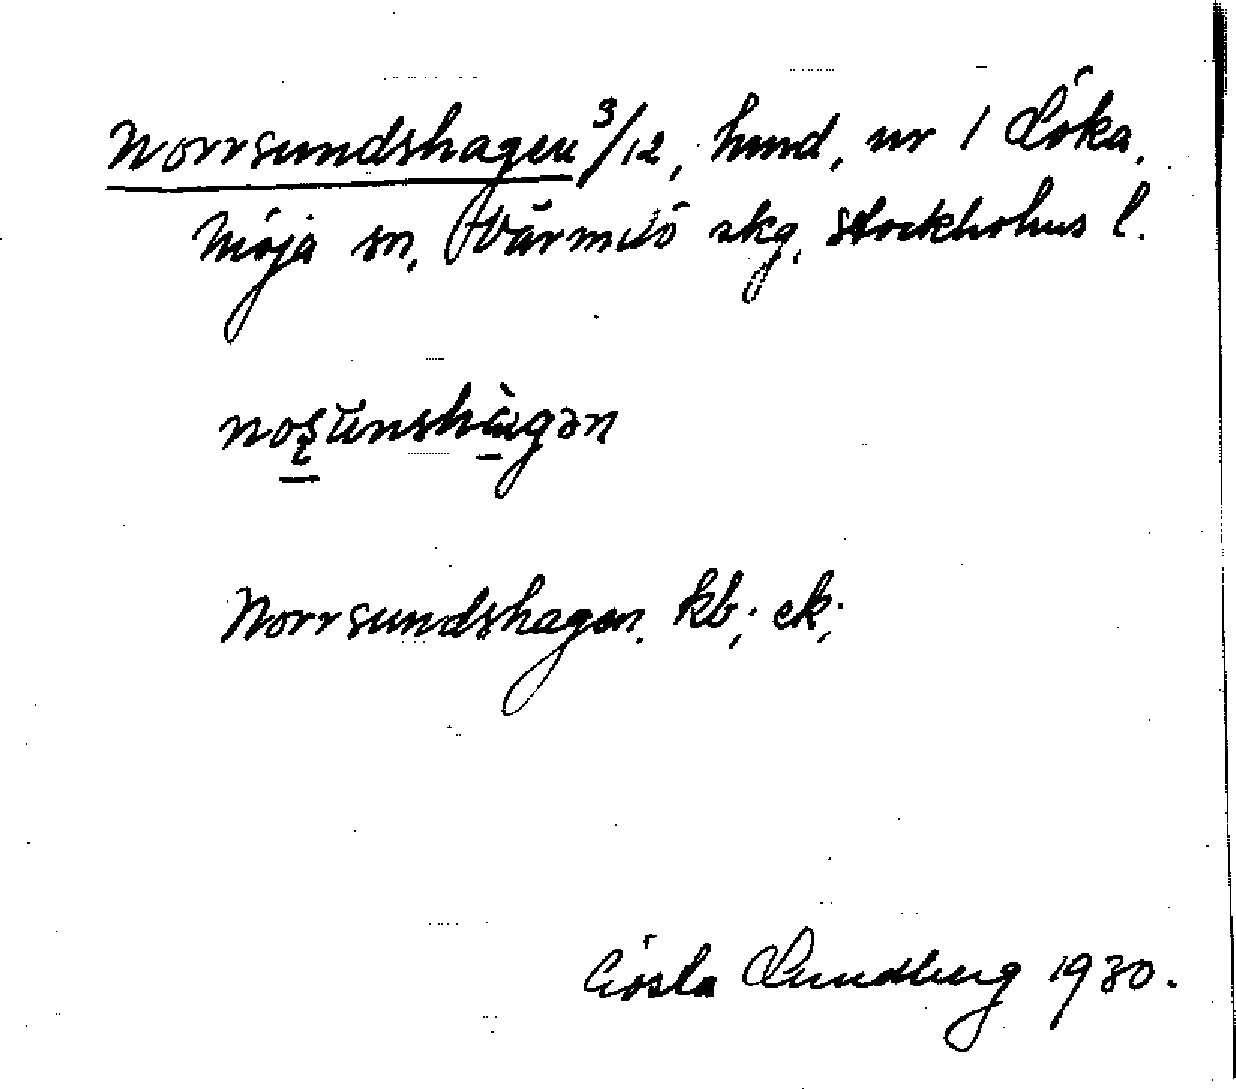 Norrsundshagen 3/12, hmd, nr 1 Löka,
Möja sn, Värmdö skg, Stockholms l.
Norrsundshagen. kb; ek;
Gösta Lundberg 1930.